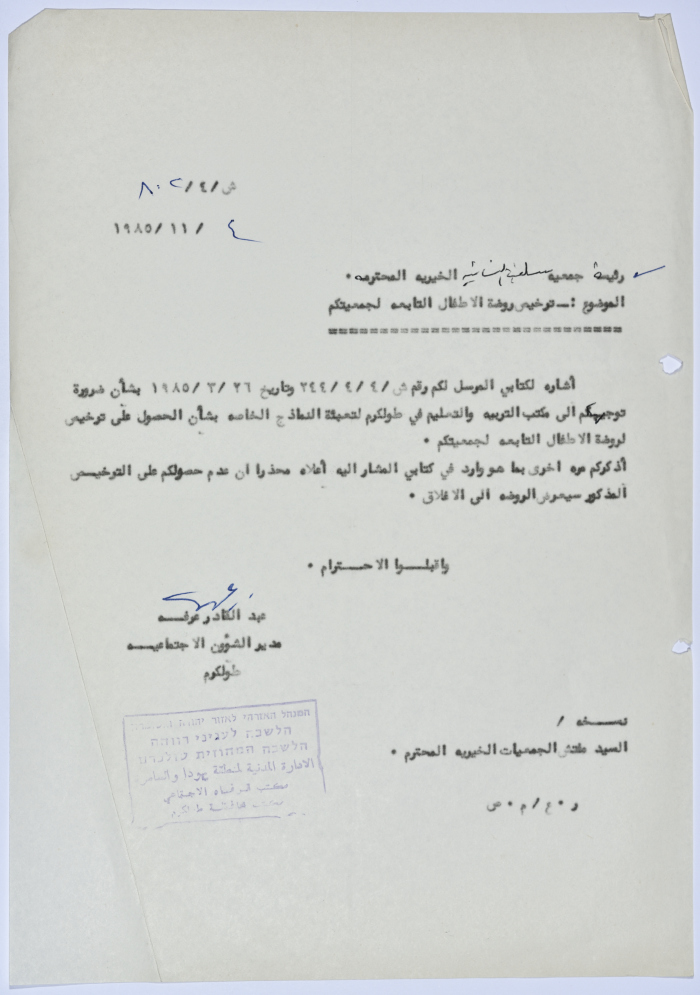 ش/٤/ ٨٠٢
٤ /١١/ ١٩٨٥
رئيسة جمعيه الخيريه المحترمه .
الموضوع :ــ ترخيص روضة الاطفال التابعه لجمعيتكم
=============================
أشاره لكتابي المرسل لكم رقم ش/٤/٤/٢٤٤ وتاريخ ٢٦ /٣/ ١٩٨٥ بشأن ضرورة
توجيهكم الى مكتب التربيه والتعليم في طولكرم لتعبئة النماذج الخاصه بشأن الحصول على ترخيص
لروضة الاطفال التابعه لجمعيتكم .
أذكركم مره اخرى بما هو وارد في كتابي المشار اليه أعلاه محذرا ان عدم حصولكم على الترخيــص
المذكور سيعرض الروضه الى الاغلاق .
واقبلــوا الاحــترام .
عبد القادر عرفــه
مدير الشؤون الاجتماعيــه
طولكرم
המנהל האזרחי לאזור יהודה
הלשכה לעניני רווחה
הלשכה המחוזית טולכרם
الادارة المدنية لمنطقة يهودا والسامرة
مكتب الرفاه الاجتماعي
نسـخه /
السيد مفتش الجمعيات الخيريه المحترم .
ر . ع / م . ص